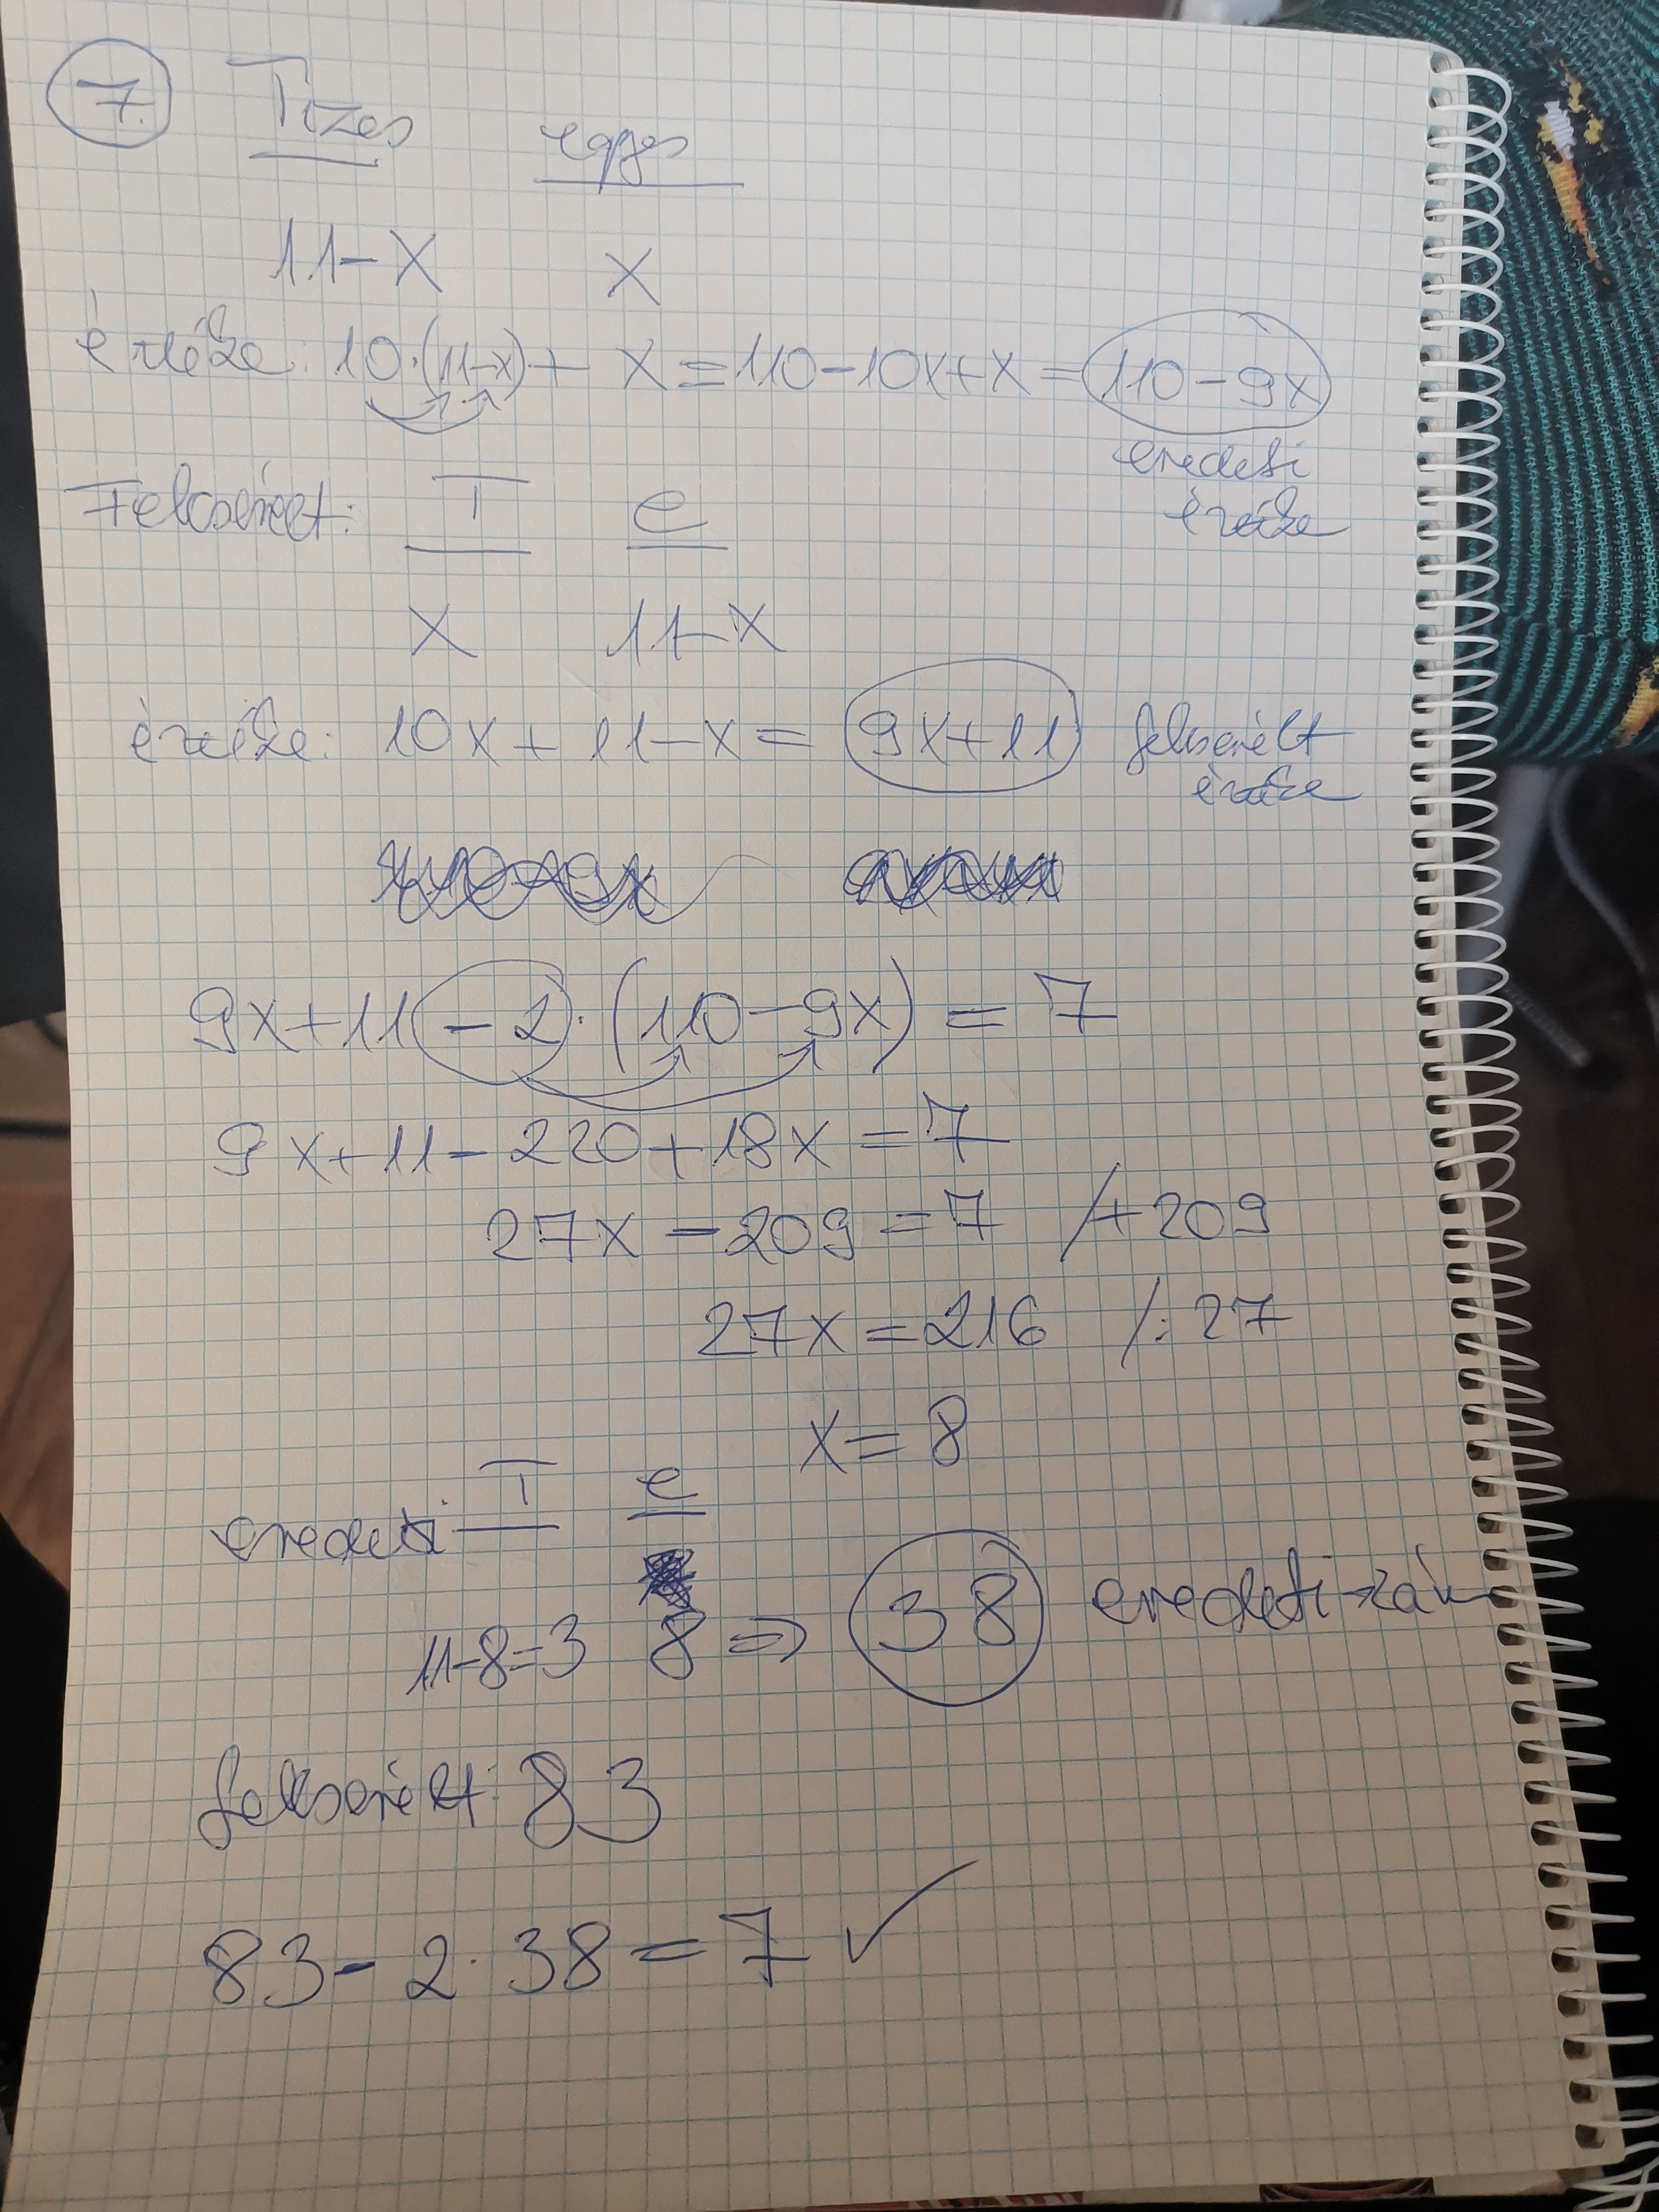 7. Tizes egyes
11-x x
értéke: 10·(11-x)+ x = 110-10x+x = 110-9x
eredeti
értéke
Felcserélt: T e
x 11-x
értéke: 10x + 11-x = 9x+11 felcserélt
értéke
9x+11 -2·(110-9x) = 7
9x+11-220+18x = 7
27x - 209 = 7 /+209
27x = 216 /:27
x = 8
eredeti T e
11-8=3 8 ⇒ 38 eredeti szám
felcserélt: 83
83 - 2·38 = 7 ✓